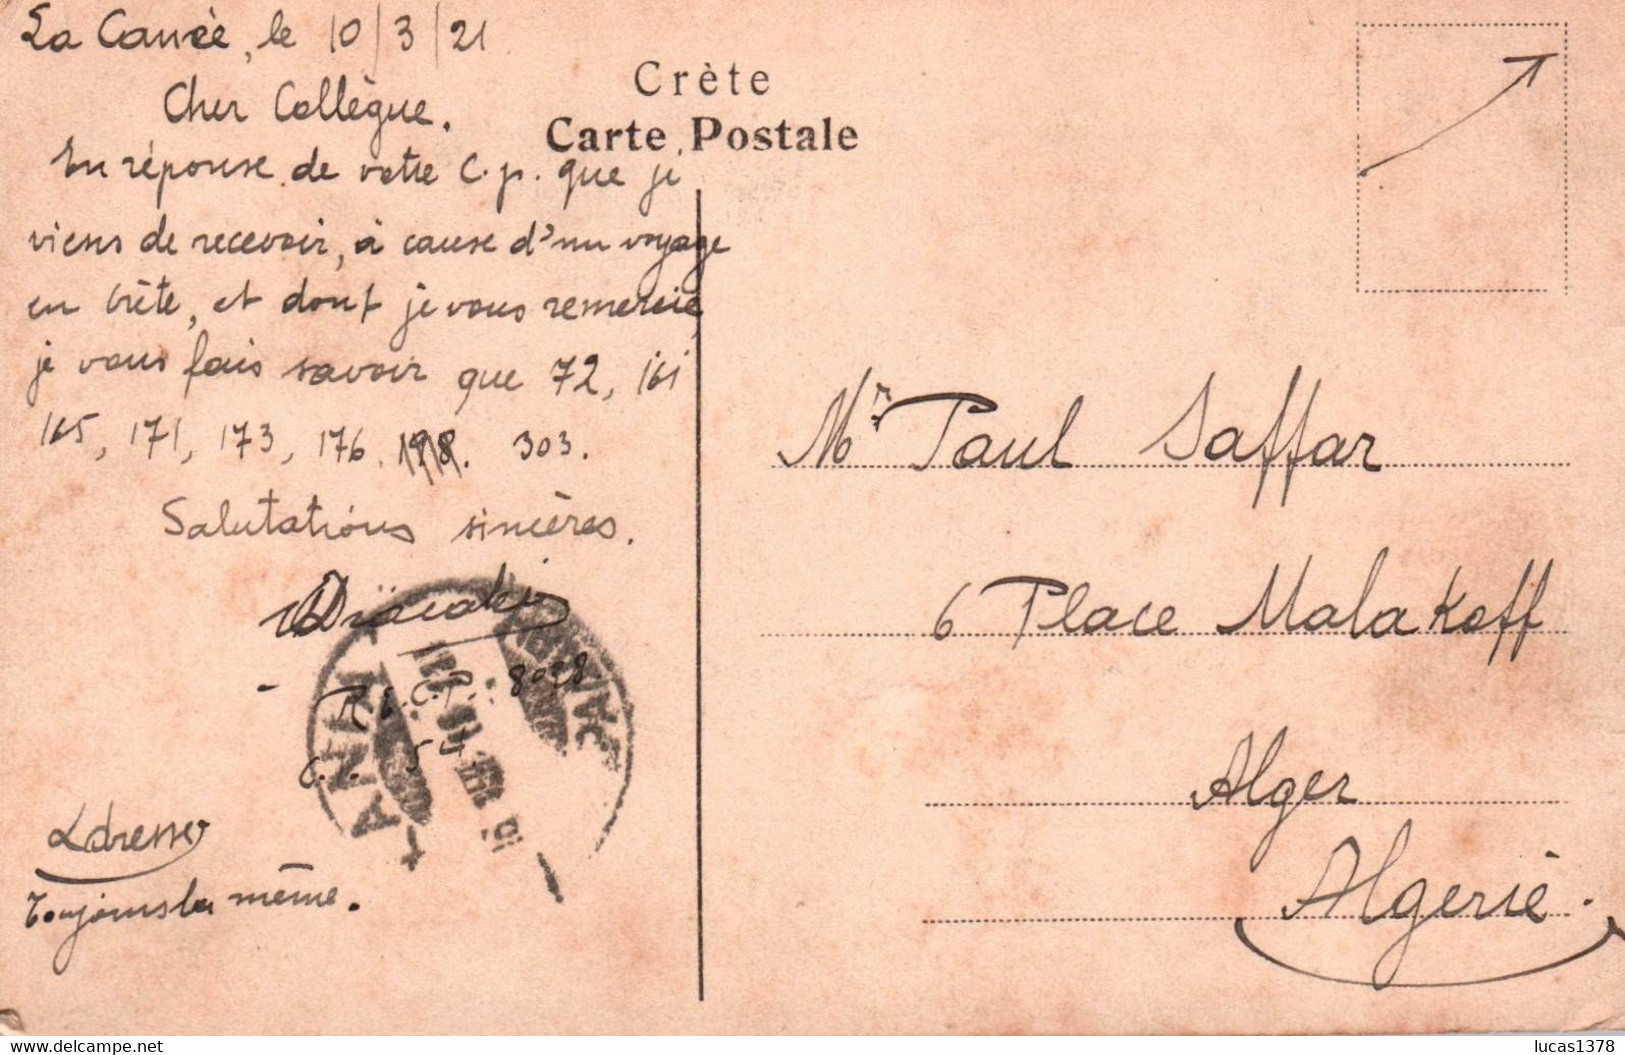 La Canée, le 10/3/21
Cher Collègue.
En réponse de votre C.p. que je
viens de recevoir, à cause d'un voyage
en Crète, et dont je vous remercie,
je vous fais savoir que 72, 161
165, 171, 173, 176. 198. 303.
Salutations sincères.
8028
C.P. 54.
Adresse
toujours la même.
Crète
Carte Postale
Mr Paul Saffar
6 Place Malakoff
Alger
Algerié.
lucas1378